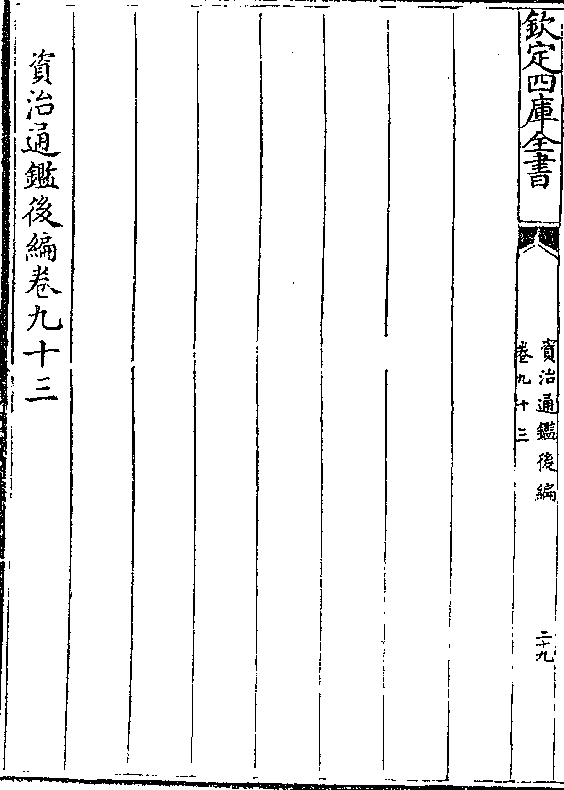 欽定四庫全書
資治通鑑後編
卷九十三
二十九
資治通鑑後編卷九十三